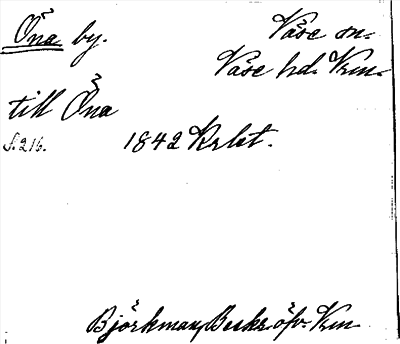 Öna by. Väse sn.
Väse hd. Vrm.
till Öna
s. 216. 1842 Krlst.
Björkman, Beskr. öfv. Vrm.